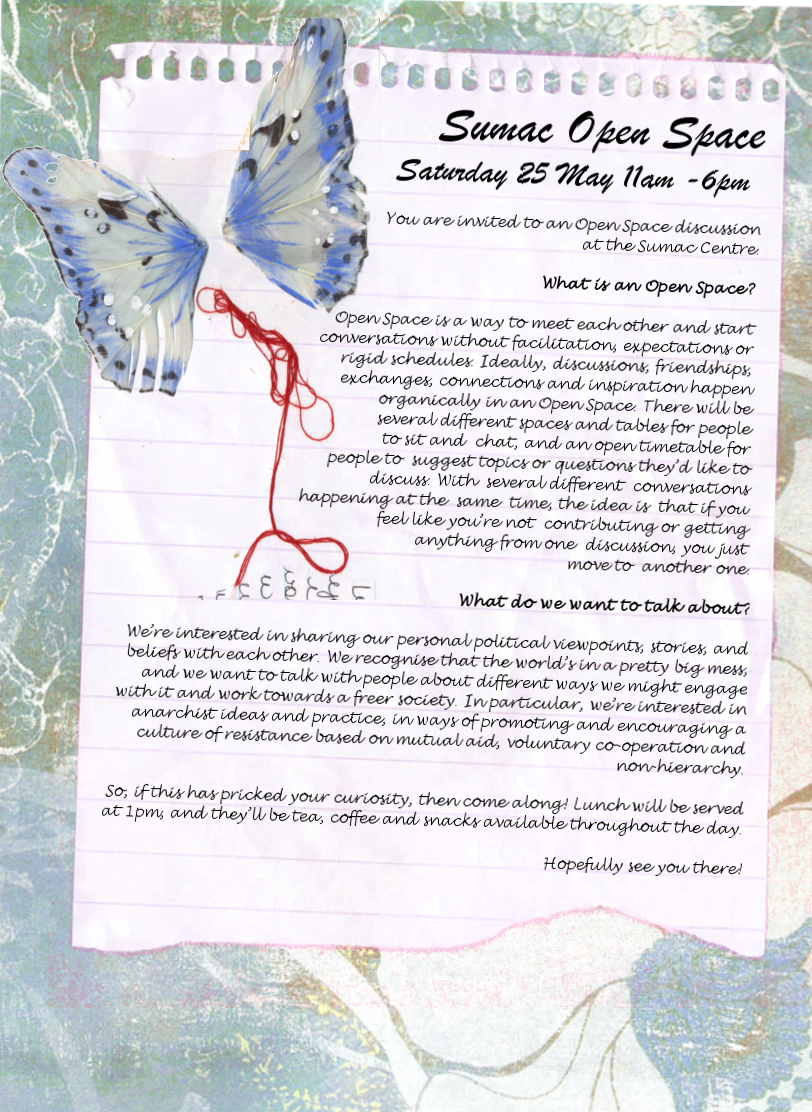 Sumac Open Space
Saturday 25 May 11am -6pm
You are invited to an Open Space discussion
at the Sumac Centre.
What is an Open Space?
Open Space is a way to meet each other and start
conversations without facilitation, expectations or
rigid schedules. Ideally, discussions, friendships,
exchanges, connections and inspiration happen
organically in an Open Space. There will be
several different spaces and tables for people
to sit and chat, and an open timetable for
people to suggest topics or questions they'd like to
discuss. With several different conversations
happening at the same time, the idea is that if you
feel like you're not contributing or getting
anything from one discussion, you just
move to another one.
What do we want to talk about?
We're interested in sharing our personal political viewpoints, stories, and
beliefs with each other. We recognise that the world's in a pretty big mess,
and we want to talk with people about different ways we might engage
with it and work towards a freer society. In particular, we're interested in
anarchist ideas and practice, in ways of promoting and encouraging a
culture of resistance based on mutual aid, voluntary co-operation and
non-hierarchy.
So, if this has pricked your curiosity, then come along! Lunch will be served
at 1pm, and they'll be tea, coffee and snacks available throughout the day.
Hopefully see you there!